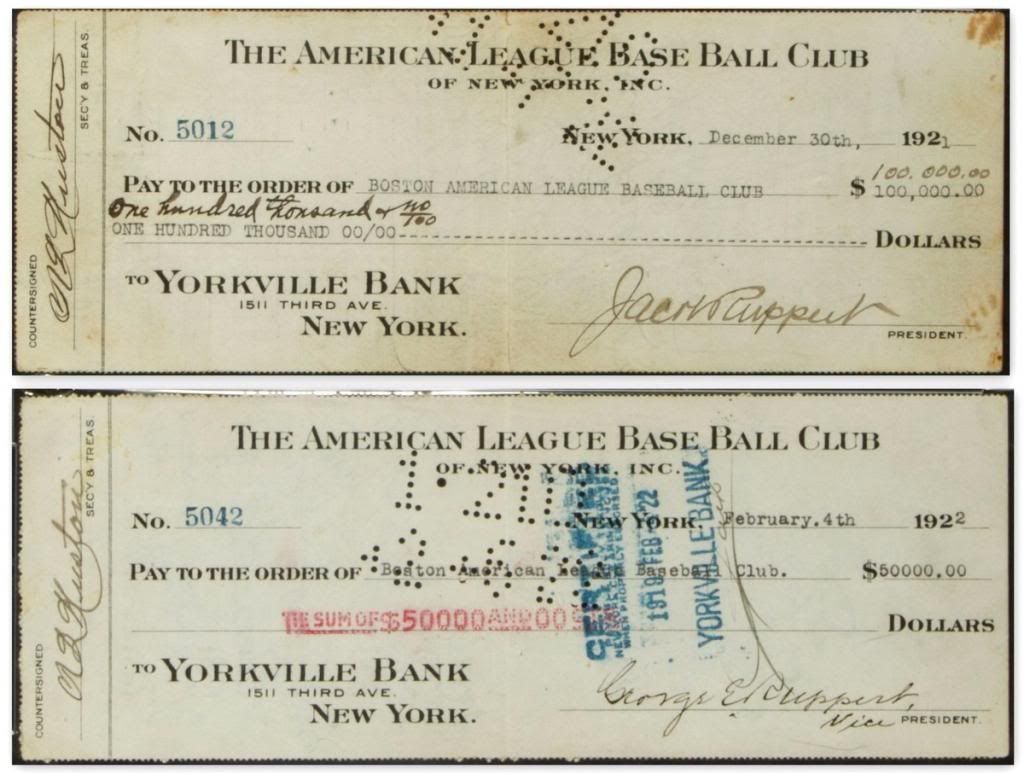 THE AMERICAN LEAGUE BASE BALL CLUB
OF NEW YORK, INC.
No. 5012
NEW YORK, December 30th, 1921
100.000.00
PAY TO THE ORDER OF BOSTON AMERICAN LEAGUE BASEBALL CLUB $ 100,000.00
One hundred thousand & no/100
ONE HUNDRED THOUSAND 00/00 DOLLARS
TO YORKVILLE BANK
1511 THIRD AVE.
NEW YORK.
Jacob Ruppert
PRESIDENT.
COUNTERSIGNED
T L Huston
SEC'Y & TREAS.
THE AMERICAN LEAGUE BASE BALL CLUB
OF NEW YORK, INC.
No. 5042
NEW YORK, February.4th 1922
PAY TO THE ORDER OF Boston American League Baseball Club. $50000.00
THE SUM OF $50000 AND 00
DOLLARS
TO YORKVILLE BANK
1511 THIRD AVE.
NEW YORK.
George E Ruppert,
Vice PRESIDENT.
COUNTERSIGNED
T L Huston
SEC'Y & TREAS.
CERTIFIED
WHEN PROPERLY ENDORSED
YORKVILLE BANK